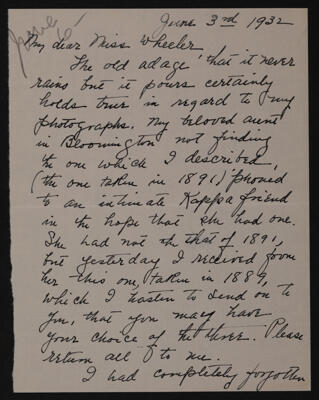 June 3rd 1932
My dear Miss Wheeler
The old adage 'that it never
rains but it pours certainly
holds true in regard to my
photographs. My beloved aunt
in Bloomington not finding
the one which I described,
(the one taken in 1891) 'phoned
to an intimate Kappa friend
in the hope that she had one.
She had not that of 1891,
but yesterday I received from
her this one, taken in 1889,
which I hasten to send on to
you, that you may have
your choice of the three. Please
return all to me.
I had completely forgotten